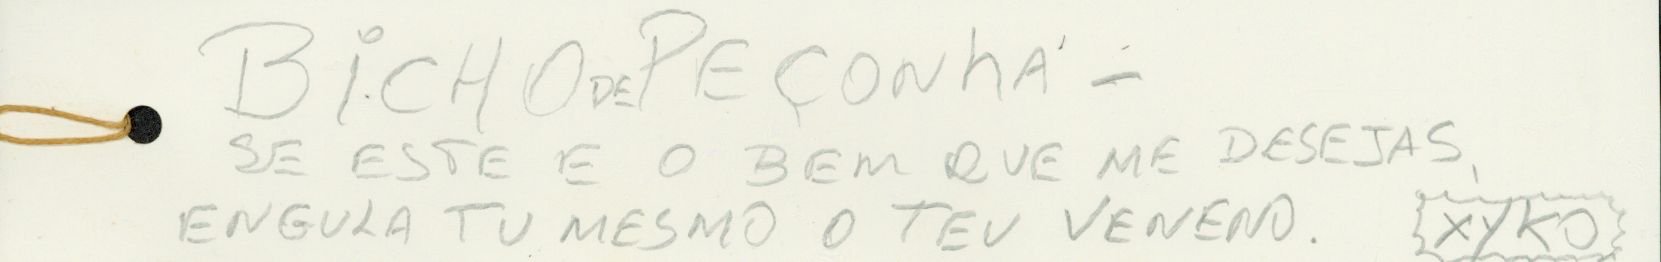 BiCHO DE PEÇONhA –
SE ESTE E O BEM QUE ME DESEJAS,
ENGULA TU MESMO O TEU VENENO.
XYKO